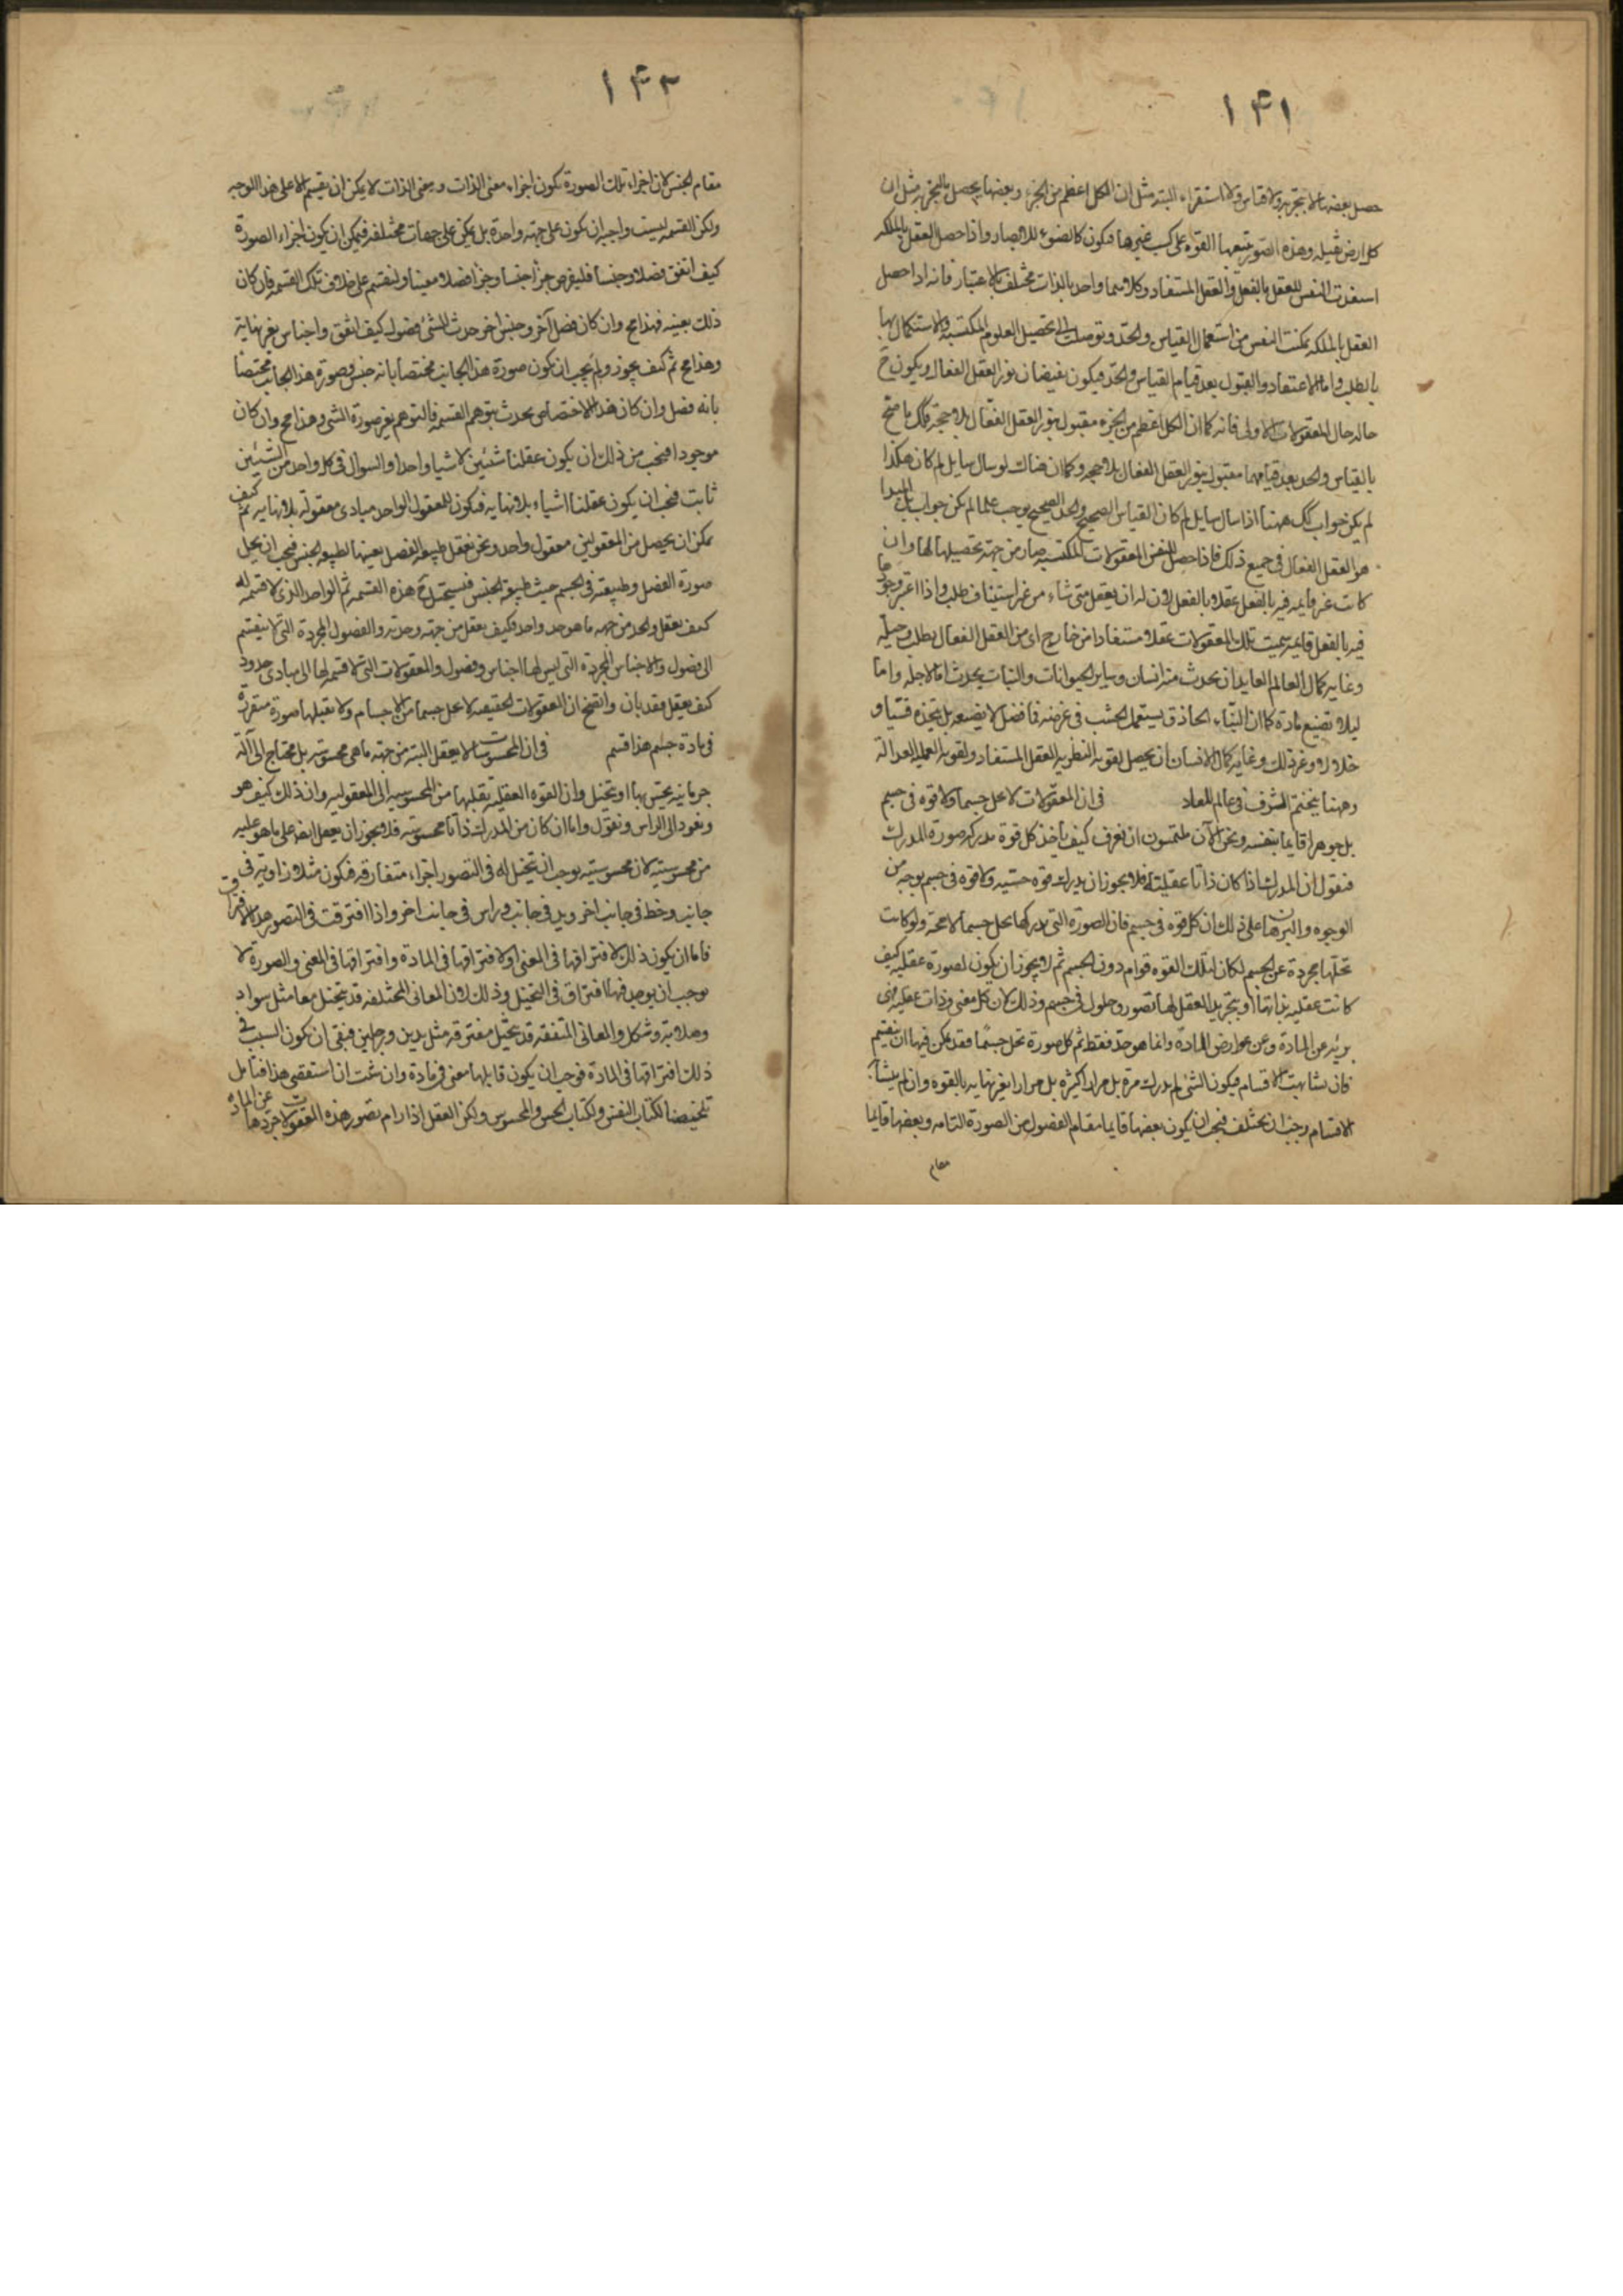 ١٤١
حصل بعضها لا بتجربة ولا قياس ولا استقراء البته مثل ان الكل اعظم من الجزء وبعضها يحصل بالتجربه مثل ان
كل ارض ثقيله وهذه الصور يتبعها القوة على كسب غيرها فيكون كالضوء للابصار واذا حصل العقل بالملكه
النفس للعقل بالفعل والعقل المستفاد وكلاهما واحد بالذات مختلف بالاعتبار فانه اذا حصل
العقل بالملكه تمكنت النفس من استعمال القياس والحد وتوصلت الى تحصيل العلوم المكتسبه والاستكمال بها
بالطلب واما الاعتقاد والقبول بعد قيام القياس والحد فيكون بفيضان نور العقل الفعال ويكون ح
حاله حال المعقولات الاولى فانه كما ان الكل اعظم من الجزء مقبول بنور العقل الفعال بلا حجة فكك ما صح
بالقياس والحد بعد قيامهما مقبول بنور العقل الفعال بلا حجه وكما ان هناك لو سال سايل لم كان هكذا
لم يكن جواب كك ههنا اذا سال سايل لم كان القياس الصحيح والحد الصحيح يوجب علما لم يكن جواب بل المبدا
هو العقل الفعال فى جميع ذلك فاذا حصل للنفس المعقولات المكتسبه صار من جهة تحصيلها لها وان
كانت غير قايمه فيه بالفعل عقلا بالفعل لان له ان يعقل متى شاء من غير استيناف طلب واذا اعتبر وجودها
فيه بالفعل قايمه سميت تلك المعقولات عقلا مستفادا من خارج اى من العقل الفعال بطلب وحيله
وغايه كمال العالم العايد ان يحدث منه انسان وساير الحيوانات والنبات يحدث اما لاجله واما
ليلا تضيع المادة كما ان البنّاء الحاذق يستعمل الخشب فى غرضه فما فضل لا يضيعه بل يتخذه قسيا و
خلالا وغير ذلك وغايه كمال الانسان ان يحصل لقوته النظريه العقل المستفاد ولقوته العمليه العدالة
وههنا يختتم الشرف فى عالم المعاد فى ان المعقولات لا تحل جسما ولا قوه فى جسم
بل جوهرا قايما بنفسه ونحن الآن ملتمسون ان نعرف كيف تأخذ كل قوة مدركه صورة المدرك
فنقول ان المدرك اذا كان ذاتا عقليته فلا يجوز ان يدركه قوه حسيه ولا قوه فى جسم بوجه من
الوجوه والبرهان على ذلك ان كل قوه فى جسم فان الصورة التى تدركها تحل جسما لا محة ولو كانت
تحلها مجردة عن الجسم لكان لتلك القوه قوام دون الجسم ثم لا يجوز ان يكون لصورة عقليه كيف
كانت عقليه بذاتها او بتجريد العقل لها تصور وحلول فى جسم وذلك لان كل معنى وذات عقليه فهى
بريه عن المادة وعن عوارض المادة وانما هو حد فقط ثم كل صورة تحل جسمًا فقد يمكن فيها ان ينقسم
فان تشابهت الاقسام فيكون الشى لم يدرك مرة بل مرارا كثيره بل مرارا بغير نهايه بالقوه وان لم يتشابه
الاقسام وجب ان يختلف فيجب ان يكون بعضها قايما مقام الفصول من الصورة التامه وبعضها قايما
مقام
١٤٢
مقام الجنس لان اجزاء تلك الصورة يكون اجزاء معنى الذات ومعنى الذات لا يمكن ان يقسم الا على هذا الوجه
ولكن القسمه ليست واجبه ان يكون على جهة واحدة بل يمكن على جهات مختلفه فيمكن ان يكون اجزاء الصورة
كيف اتفق فصلا وجنسا فليفرض جزا جنسا وجزا فصلا معينا ولنقسم على خلاف تلك القسمه فان كان
ذلك بعينه فهذا مح وان كان فصل آخر وجنس اخر حدث للشئ فصول كيف اتفق واجناس بغير نهاية
وهذا مح ثم كيف يجوز ولم يجب ان يكون صورة هذا الجانب مختصا بانه جنس وصورة هذا الجانب مختصا
بانه فصل وان كان هذا الاختصاص يحدث بتوهم القسمه فالتوهم يغير صورة الشى وهذا مح وان كان
موجودا فيجب من ذلك ان يكون عقلنا شيئين لا شيا واحدا والسوال فى كل واحد من الشيئين
ثابت فيجب ان يكون عقلنا اشياء بلا نهايه فيكون للمعقول الواحد مبادى معقولة بلا نهايه ثم كيف
يمكن ان يحصل من المعقولين معقول واحد ونحن نعقل طبيعه الفصل بعينها لطبيعه الجنس فيجب ان يحل
صورة الفصل وطبيعته فى الجسم حيث طبيعة الجنس فيستحيل ح هذه القسمه ثم الواحد الذى لا قسمه له
كيف يعقل والحد من جهه ما هو حد واحد فكيف يعقل من جهة وحدته والفصول المجردة التى لا ينقسم
الى فصول والاجناس المجردة التى ليس لها اجناس وفصول والمعقولات التى لا قسمه لها الى مبادى حدود
كيف يعقل فقد بان واتضح ان المعقولات الحقيقيه لا تحل جسما من الاجسام ولا تقبلها صورة متقررة
فى مادة جسم هذا قسم فى ان المحسوسات لا يعقل البته من جهة ما هى محسوسه بل محتاج الى آلة
جرمانيه يحس بها او يتخيل وان القوه العقليه ينقلها من المحسوسيه الى المعقوليه وان ذلك كيف هو
ونعود الى الراس ونقول واما ان كان من المدركات ذاتا محسوسه فلا يجوز ان يعقل ايضا على ما هو عليه
من محسوسيته لان محسوسيته يوجب ان يتخيل له فى التصور اجزاء متفارقه فيكون مثلا زاويه فى
جانب وخط فى جانب اخر ويد فى جانب وراس فى جانب اخر واذا افترقت فى التصور هذا الافتراق
فاما ان يكون ذلك لافتراقها فى المعنى او لافتراقها فى المادة وافتراقها فى المعنى والصورة لا
يوجب ان يوجد فيها افتراق فى التخيل وذلك لان المعانى المختلفه قد يتخيل معا مثل سواد
وحلاوة وشكل والمعانى المتفقه قد يتخيل مفترقه مثل يدين ورجلين فبقى ان يكون السبب فى
ذلك افتراقها فى المادة فوجب ان يكون قابلها معنى فى مادة وان شئت ان استقصى هذا فتأمل
تلخيصنا لكتاب النفس ولكتاب الحس والمحسوس ولكن العقل اذا رام تصور هذه المعقولات جردها عن المادة